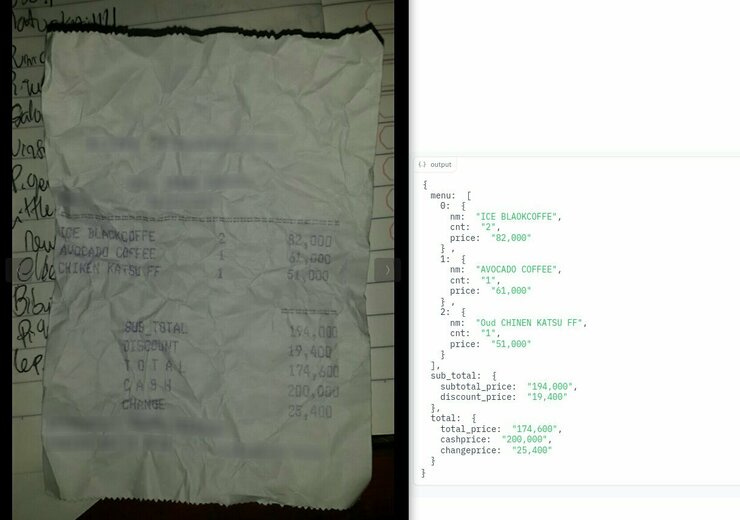 ICE BLACKCOFFE 2 82,000
AVOCADO COFFEE 1 61,000
CHIKEN KATSU FF 1 51,000
SUB_TOTAL 194,000
DISCOUNT 19,400
T O T A L 174,600
C A S H 200,000
CHANGE 25,400
output
{
menu: [
0: {
nm: "ICE BLAOKCOFFE",
cnt: "2",
price: "82,000"
} ,
1: {
nm: "AVOCADO COFFEE",
cnt: "1",
price: "61,000"
} ,
2: {
nm: "Oud CHINEN KATSU FF",
cnt: "1",
price: "51,000"
}
],
sub_total: {
subtotal_price: "194,000",
discount_price: "19,400"
},
total: {
total_price: "174,600",
cashprice: "200,000",
changeprice: "25,400"
}
}